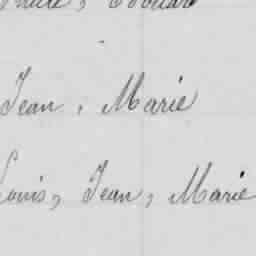 Édouard
Jean, Marie
Louis, Jean, Marie